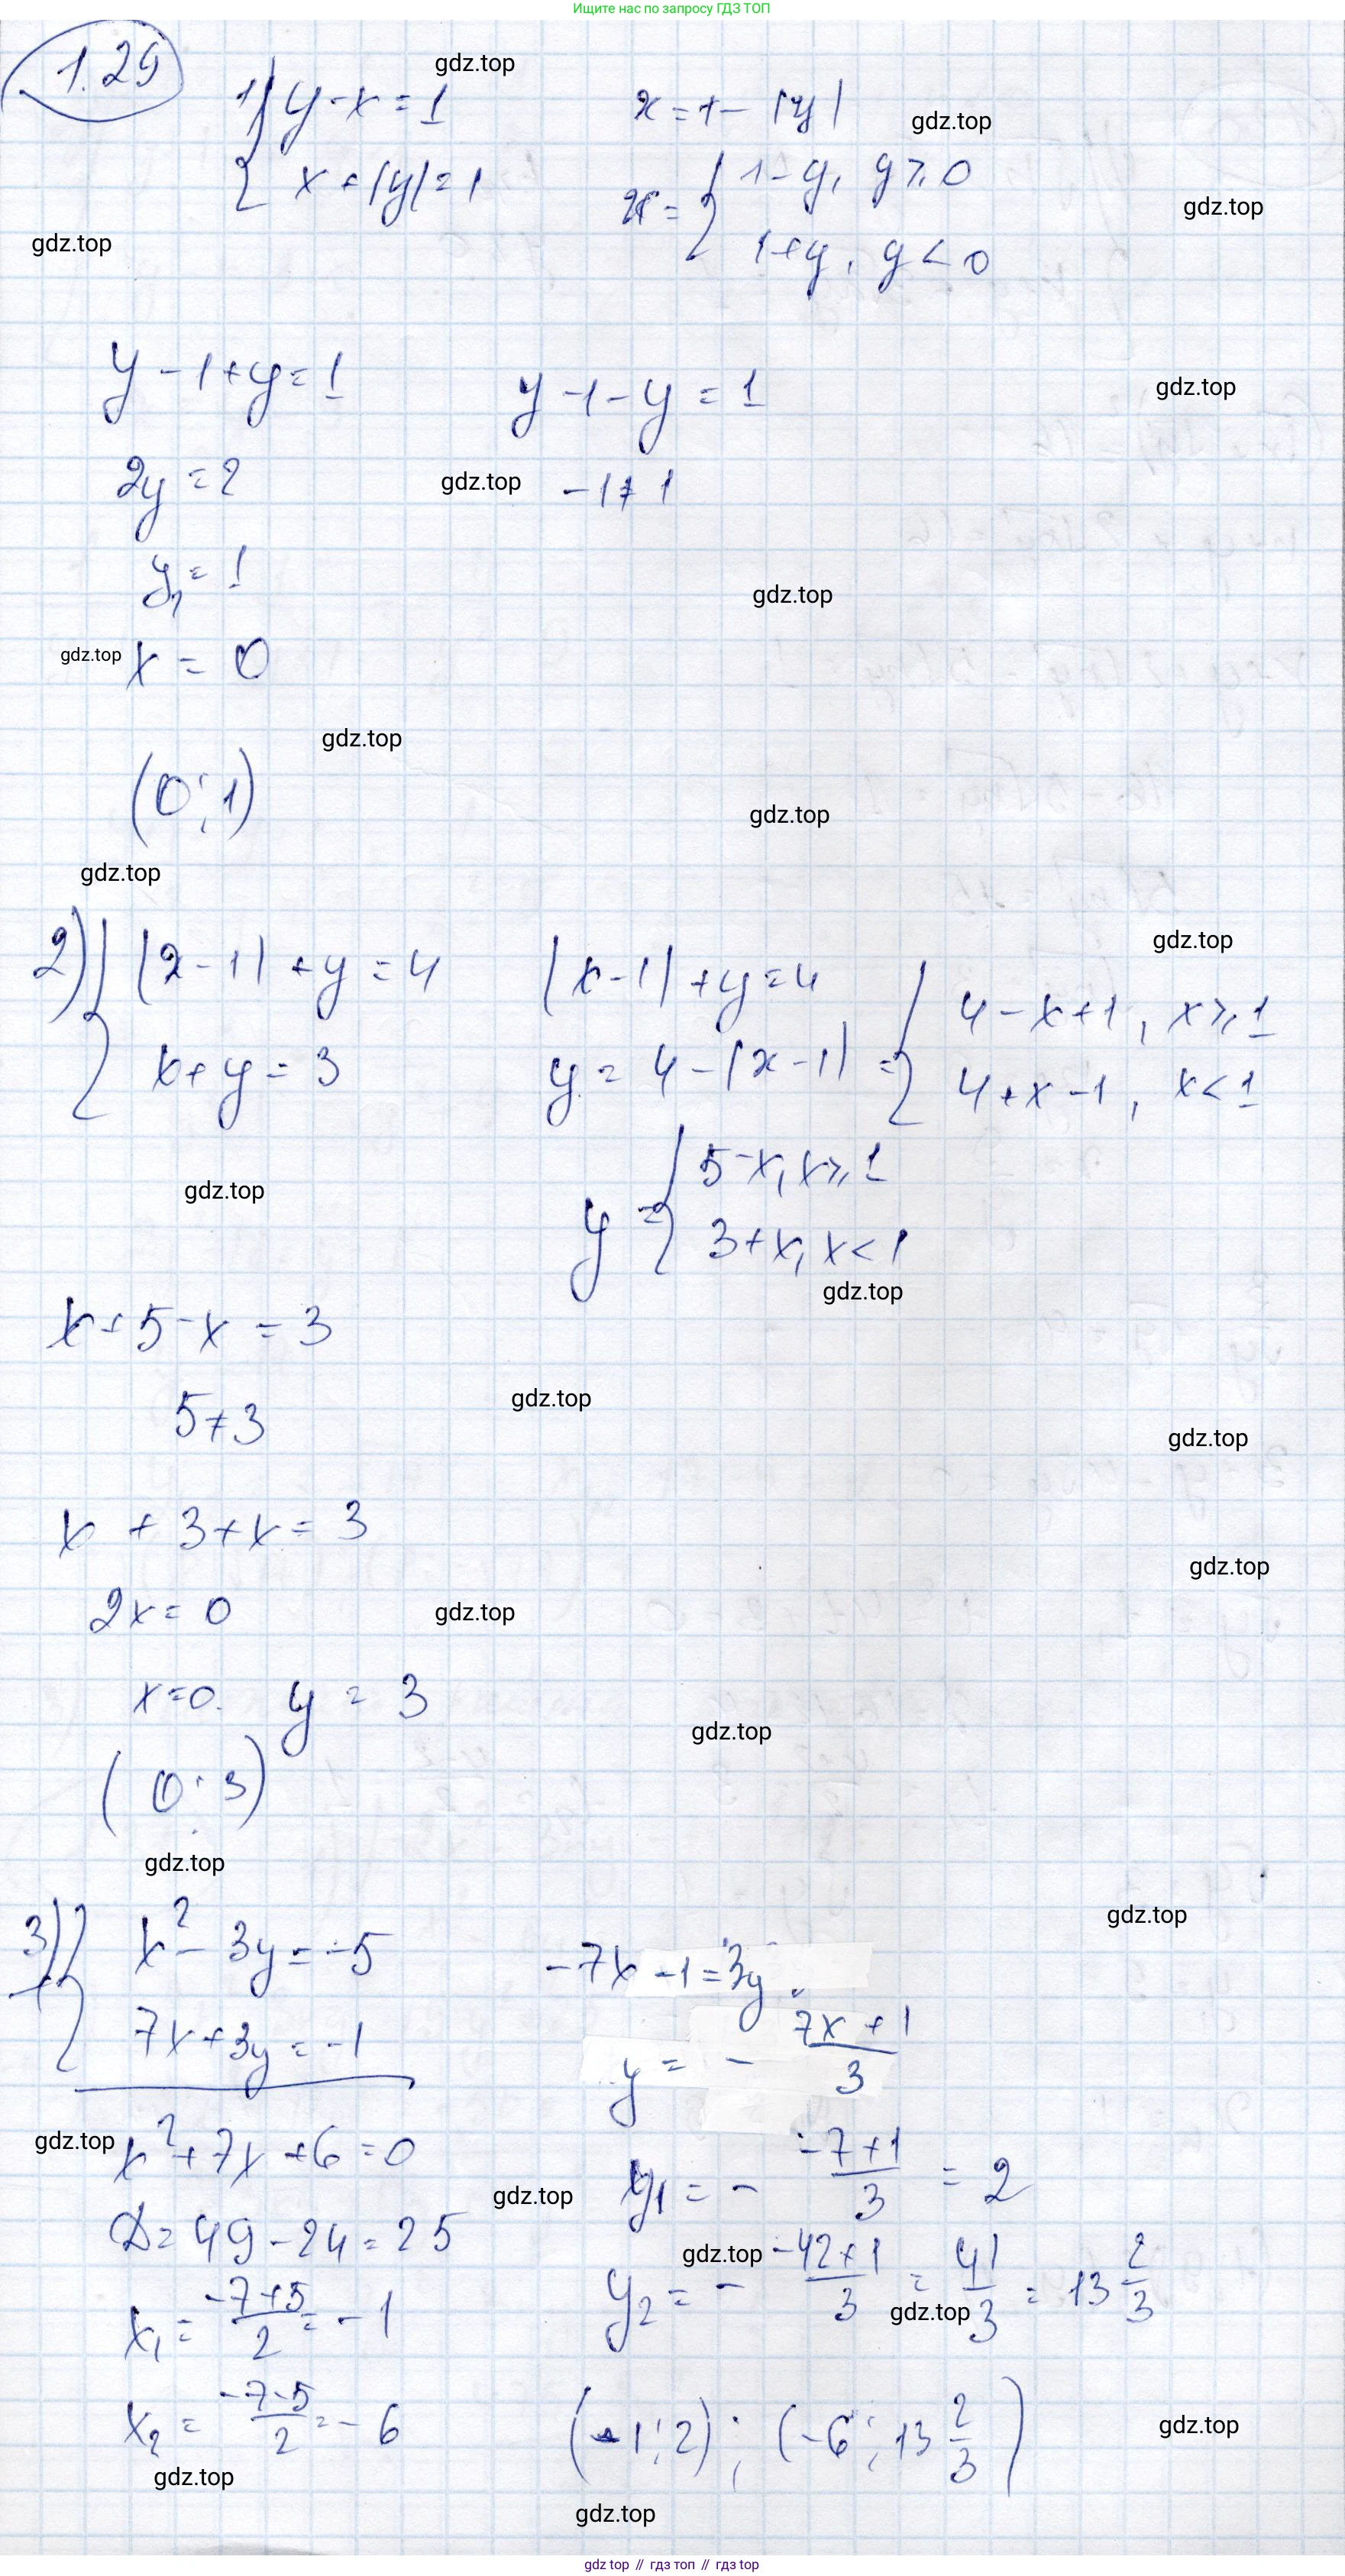 Ищите нас по запросу ГДЗ ТОП
1.29
gdz.top
1) { y - x = 1
x + |y| = 1
x = 1 - |y|
gdz.top
x = { 1 - y, y ⩾ 0
1 + y, y < 0
gdz.top
gdz.top
y - 1 + y = 1
y - 1 - y = 1
gdz.top
2y = 2
gdz.top
-1 ≠ 1
y₁ = 1
gdz.top
gdz.top
x = 0
gdz.top
(0; 1)
gdz.top
gdz.top
2) { |x - 1| + y = 4
x + y = 3
|x - 1| + y = 4
gdz.top
y = 4 - |x - 1| = { 4 - x + 1, x ⩾ 1
4 + x - 1, x < 1
gdz.top
y = { 5 - x, x ⩾ 1
3 + x, x < 1
gdz.top
x + 5 - x = 3
gdz.top
5 ≠ 3
gdz.top
x + 3 + x = 3
gdz.top
2x = 0
gdz.top
x = 0. y = 3
gdz.top
(0; 3)
gdz.top
gdz.top
3) + { x² - 3y = -5
7x + 3y = -1
-7x - 1 = 3y
y = - (7x + 1)/3
gdz.top
x² + 7x + 6 = 0
y₁ = - (-7 + 1)/3 = 2
gdz.top
D = 49 - 24 = 25
gdz.top
y₂ = - (-42 + 1)/3 = 41/3 = 13 2/3
gdz.top
x₁ = (-7 + 5)/2 = -1
x₂ = (-7 - 5)/2 = -6
(-1; 2); (-6; 13 2/3)
gdz.top
gdz.top
gdz.top
gdz.top // гдз топ // гдз top